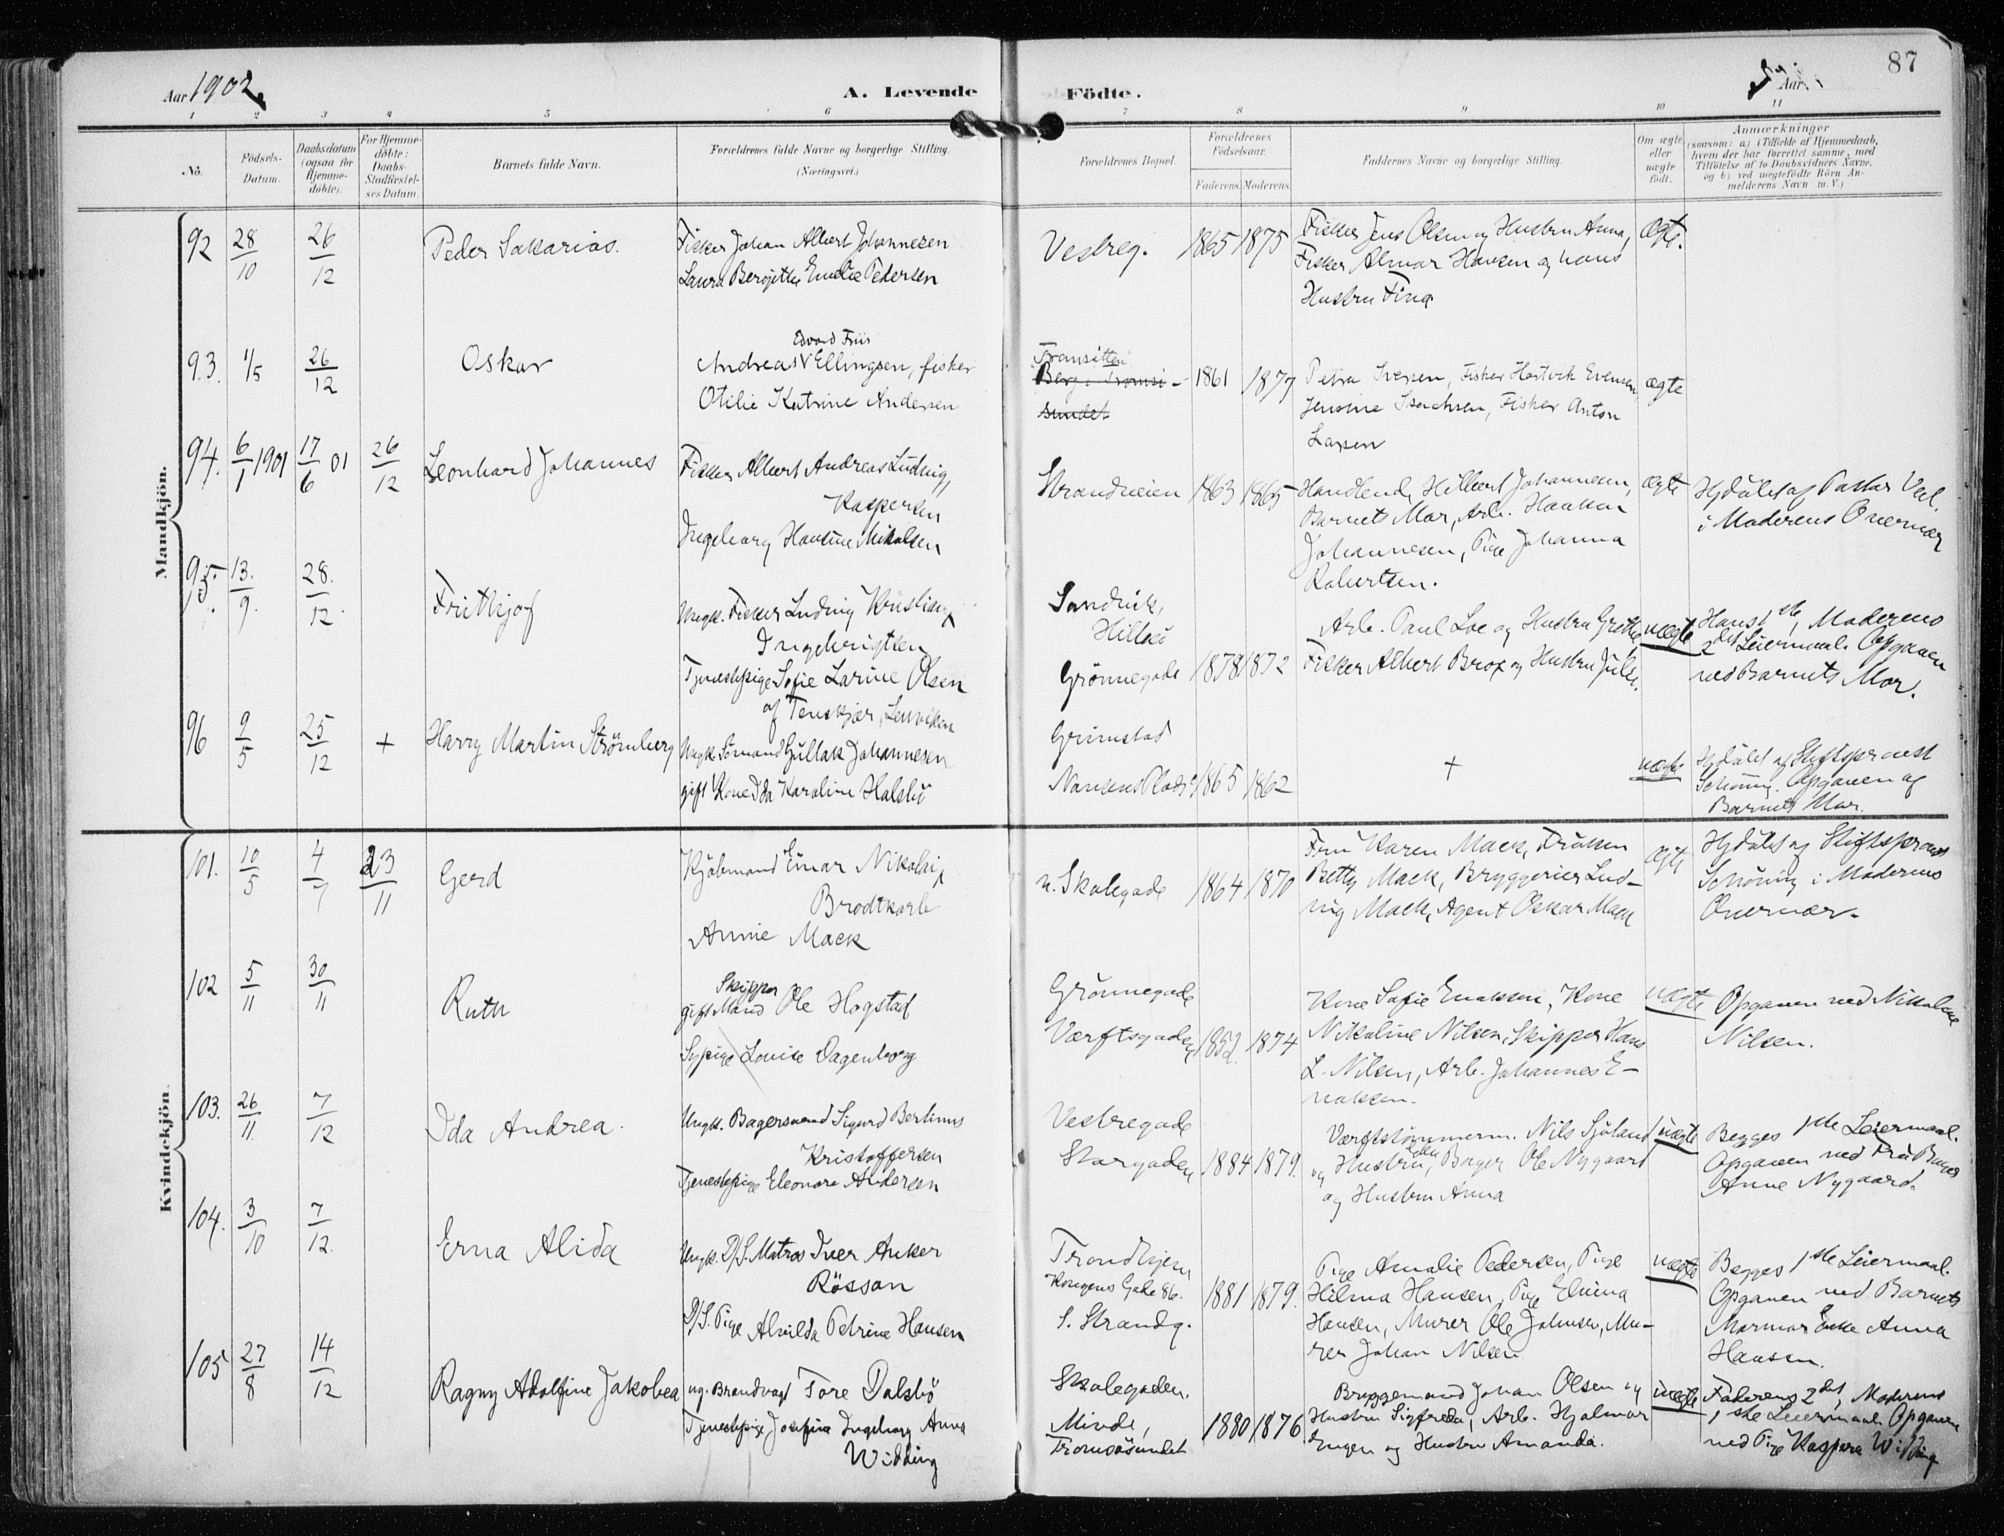 87
Aar 1902.
A. Levende Födte.
Aar
1 2 3 4 5 6 7 8 9 10 11
No.
Födsels-Datum.
Daabsdatum (ogsaa for Hjemmedöbte).
For Hjemmedöbte: Daabs-Stadfæstelses Datum.
Barnets fulde Navn.
Forældrenes fulde Navne og borgerlige Stilling.
(Næringsvei.)
Forældrenes Bopæl.
Forældrenes Födselsaar.
Faderens. Moderens.
Faddernes Navne og borgerlige Stilling.
Om ægte eller uægte födt.
Anmærkninger
(saasom: a) i Tilfælde af Hjemmedaab, hvem der har forrettet samme, med Tilföielse af to Daabsvidners Navne, og b) ved uægtefödte Börn Anmelderens Navn m. V.)
Mandkjön.
92 28/10 26/12 Peder Sakarias.
Fisker Johan Albert Johannesen
Laura Bergitte Emelie Pedersen
Vestreg. 1865 1875
Fisker Jens Olsen og Hustru Anna,
Fisker Almar Hansen og hans
Hustru Fina
ægte.
93. 1/5 26/12 Oskar
Edvard Friis
Andreas Ellingsen, fisker
Otilie Katrine Andersen
Berg i Tromsö-
sundet
1861 1877
Petra Iversen, Fisker Hartvik Evensen
Jensine Isachsen, Fisker Anton
Larsen
ægte
94. 6/1 1901 17/6 01 26/12 Leonhard Johannes
Fisker Albert Andreas Ludvig
Kaspersen
Ingeborg Hansine Mikalsen
Strandveien 1863 1865
Handlend. Hilbert Johannesen,
Barnets Mor, Arb. Haakon
Johannesen, Pige Johanna
Robertsen.
ægte
Hjdöbt af Pastor Veel
i Moderens Nærvær
95. 13./9. 28./12. Frithjof
Ungk. Fisker Ludvig Kristian
Ingebrigtsen
Tjenestepige Sofie Larine Olsen
af Tenskjær, Lenviken
Sandvik,
Hillesö
Grönnegade 1878 1872
Arb. Paul Loe og Hustru Grethe
Fisker Albert Brox og Hustru Julie.
uægte
Hans 1ste, Moderens
2det Leiermaal. Opgaven
ved Barnets Mor.
96 9/5 25/12 + Harry Martin Strömberg
Ungk. Sömand Gullak Johannesen
gift Kone Ida Karoline Halsbö
Grimstad
Nansens Plads 1865 1862
+
uægte
Hjdöbt af Stiftsprovst
Schöning. Opgaven af
Barnets Mor.
Kvindekjön.
101. 10/5 4/7 23/11 Gerd
Kjöbmand Einar Nikolai
Brodtkorb
Annie Mack
n. Skolegade 1864 1870
Fru Karen Mack, Fröken
Betty Mack, Bryggerier Lud-
vig Mack, Agent Oskar Mack
ægte
Hjdöbt af Stiftsprovst
Schöning i Moderens
Nærvær.
102 5/11 30/11 Ruth
Skipper
gift Mand Ole Hogstad
Sypige Louise Dagenborg
Grönnegade
Værftsgaden 1852. 1874
Kone Sofie Enoksen, Kone
Nikoline Nilsen, Skipper Hans
L. Nilsen, Arb. Johannes E-
noksen.
uægte
Opgaven ved Nikoline
Nilsen.
103. 26/11. 7/12 Ida Andrea.
Ungk. Bagersvend Sigurd Berlinus
Kristoffersen
Tjenestepige Eleonora Andersen
Vestregade
Storgaden 1884 1879.
Værftstömmerm. Nils Sjöland
og Hustru, Bager Ole Nygaard
og Hustru Anna
uægte
Begges 1ste Leiermaal.
Opgaven ved Fru Bager
Anne Nygaard.
104. 3/10 7/12. Erna Alida
Ungk. D/S. Matros Iver Anker
Rösson
D/S. Pige Alvilda Petrine Hansen
Trondhjem
Kongens Gade 86.
S. Strandg. 1881 1879.
Pige Amalie Pedersen, Pige
Hilma Hansen, Pige Elvina
Hansen, Murer Ole Johnsen, Mu-
rer Johan Nilsen
uægte
Begges 1ste Leiermaal.
Opgaven ved Barnets
Mormor Enke Anna
Hansen.
105 27/8 14/12 Ragny Adolfine Jakobea
ug. Brandvagt Tore Dalsbö
Tjenestepige Josefina Ingeborg Anna
Widding
Skolegaden.
Minde,
Tromsösundet 1880 1876
Bryggemand Johan Olsen og
Hustru Sigfreda, Arb. Hjalmar
Engen og Hustru Amanda.
uægte
Faderens 2det, Moderens
1ste Leiermaal. Opgaven
ved Pige Kaspara Widding